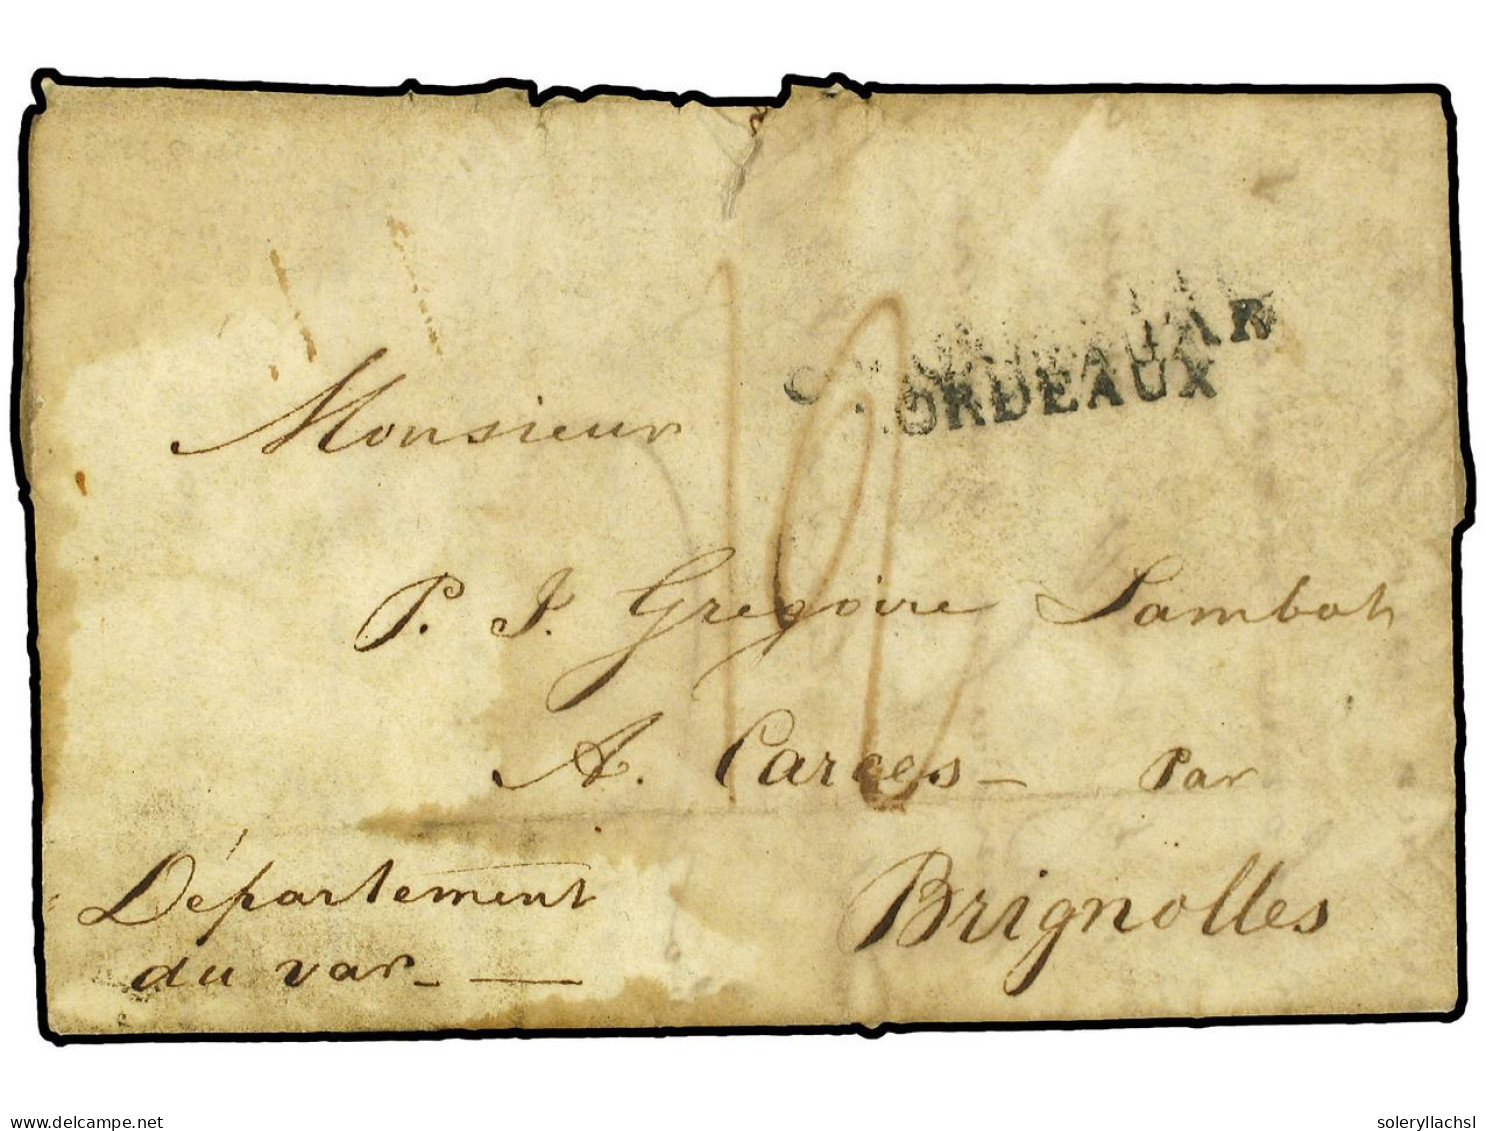 PAR
BORDEAUX
Monsieur
P. J. Gregoire Lambot
A. Carces - Par
Brignolles
Département
du var -
delcampe.net
soleryllachsl